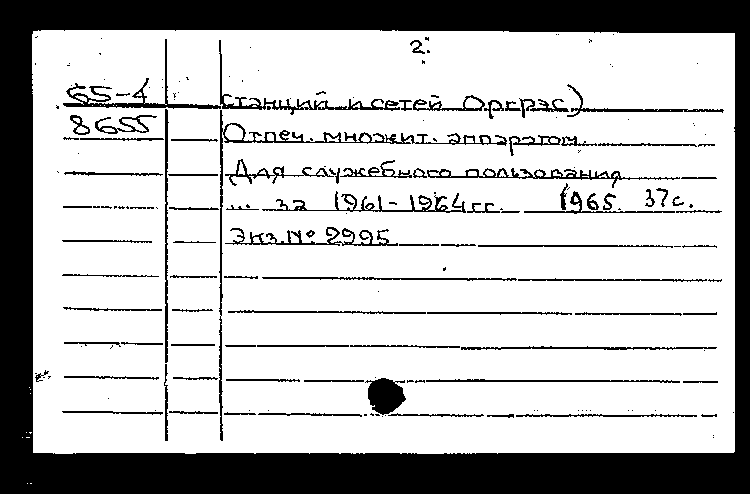 2.
65-4 станций и сетей Оргрэс)
8655 Отпеч. множит. аппаратом.
Для служебного пользования
... за 1961-1964 гг. 1965. 37с.
Экз. № 2995